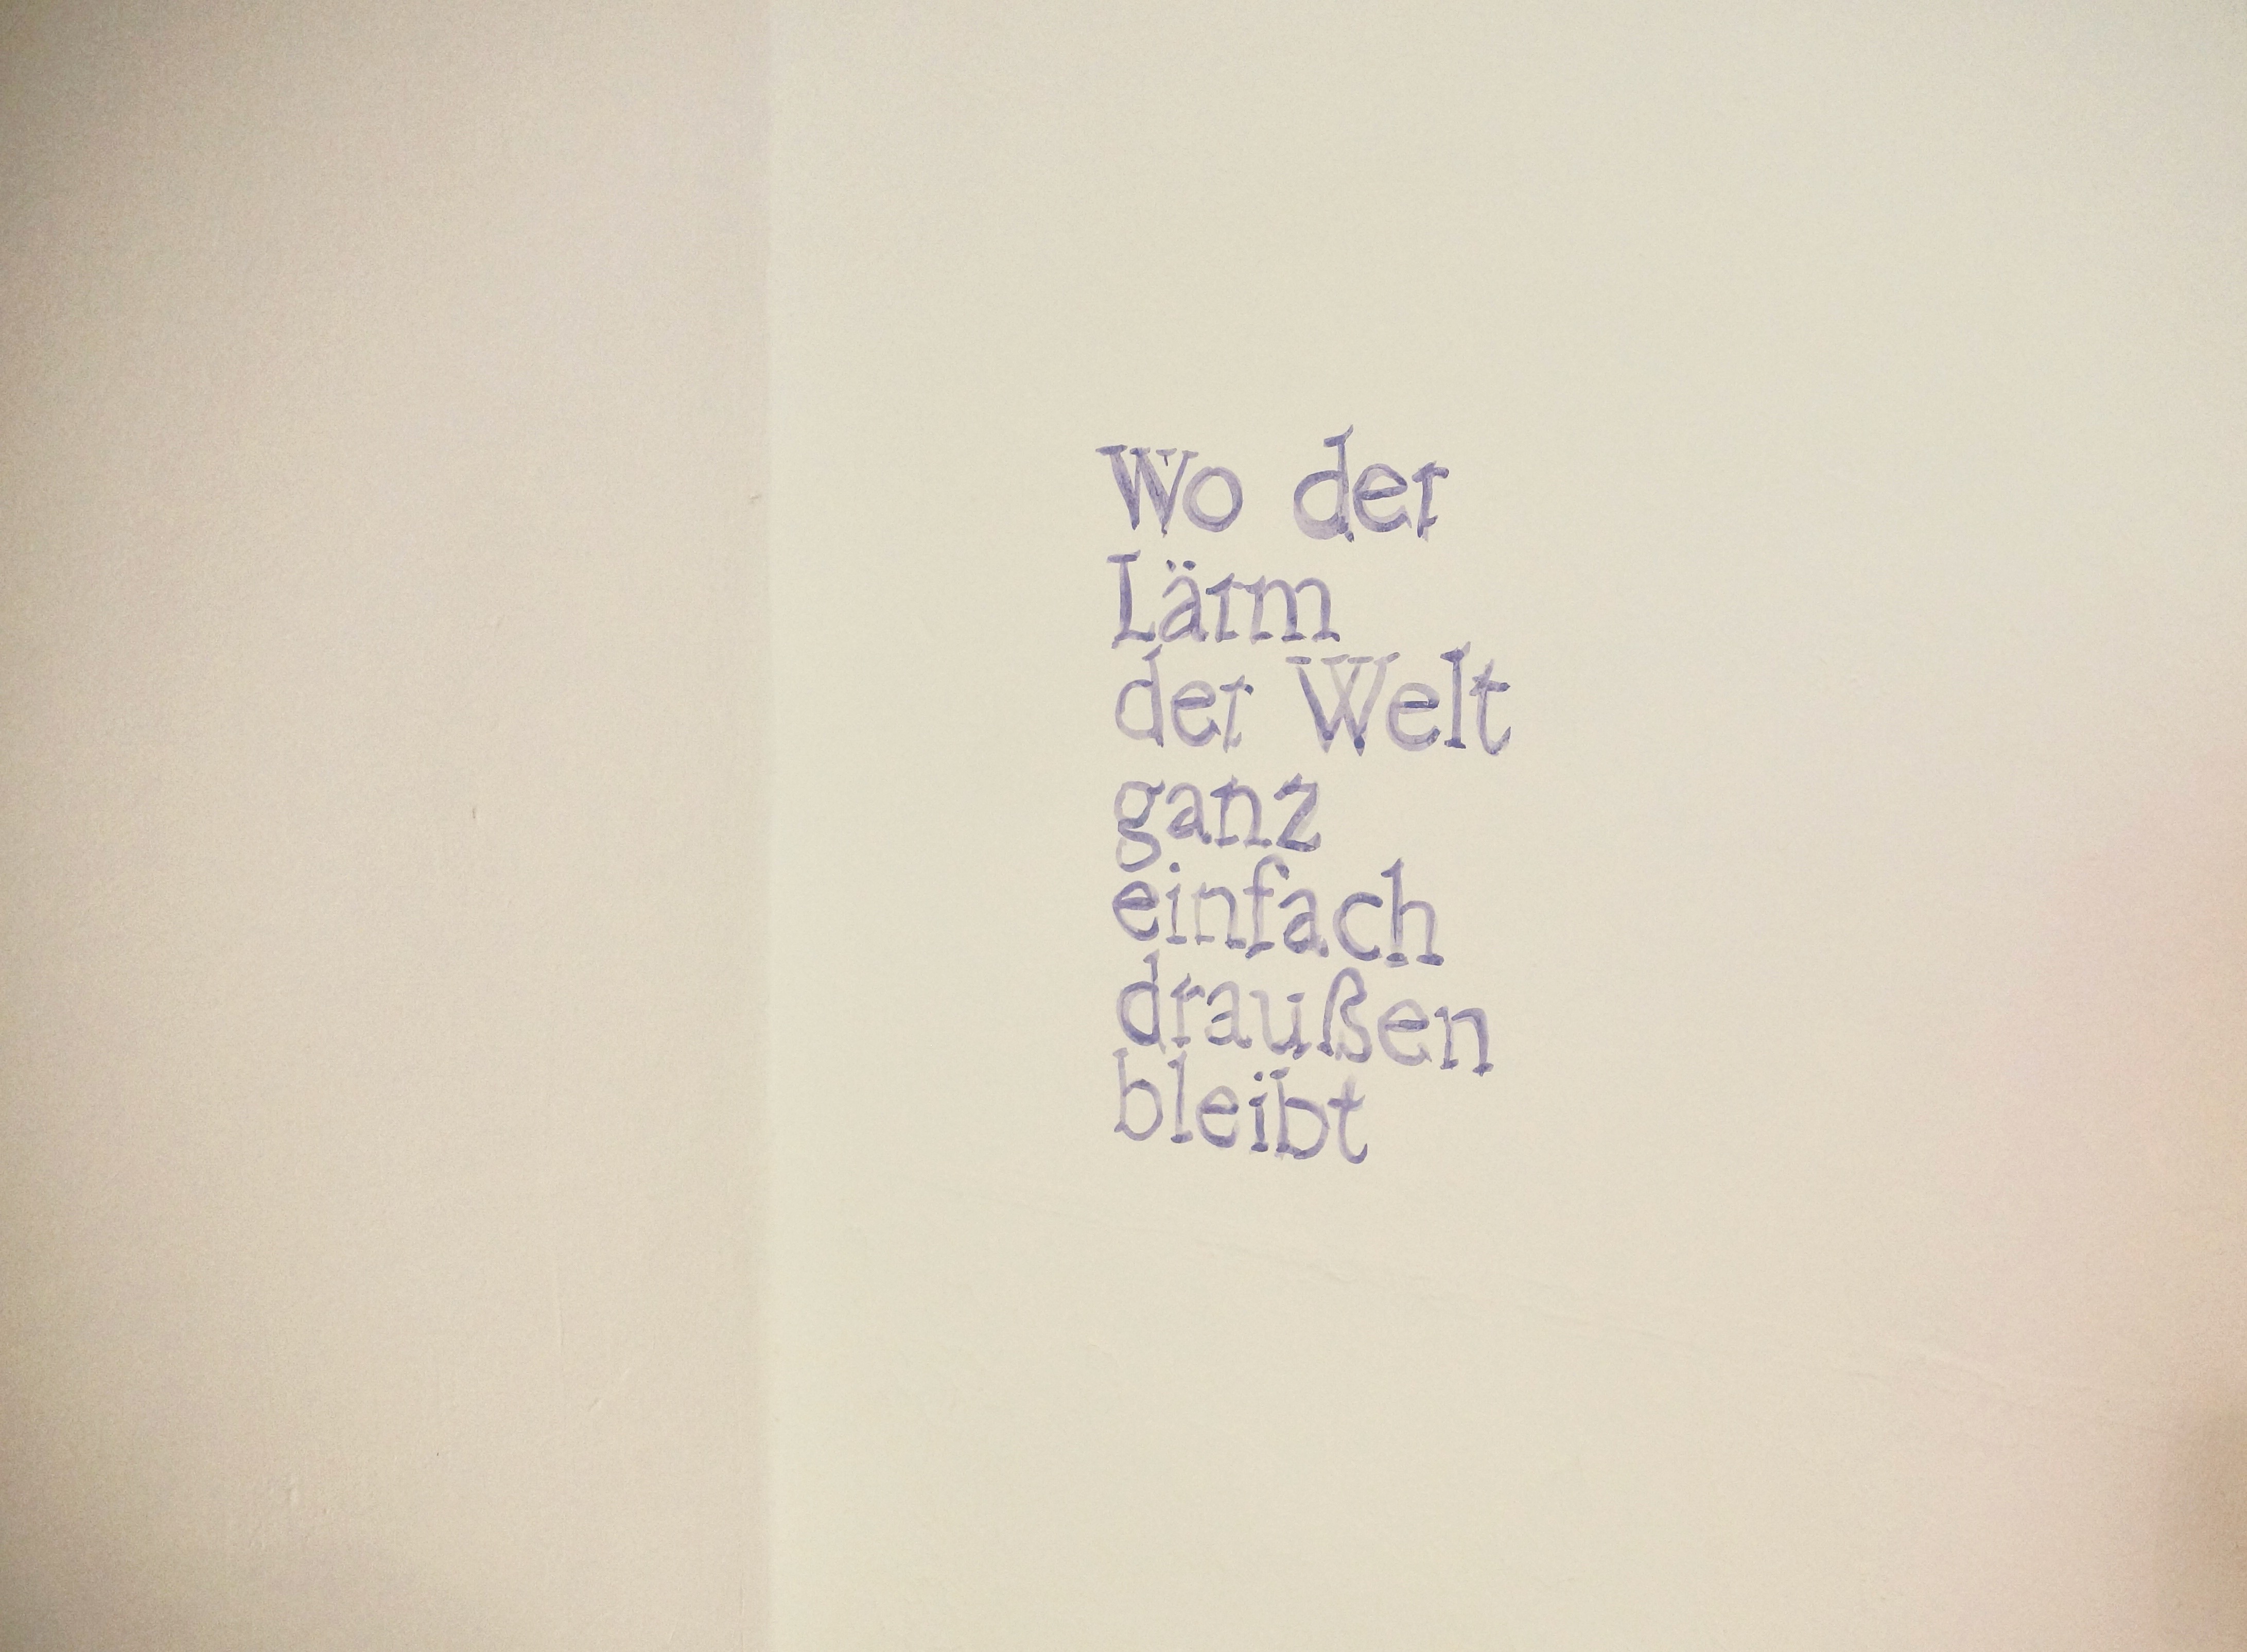 Wo der
Lärm
der Welt
ganz
einfach
draußen
bleibt